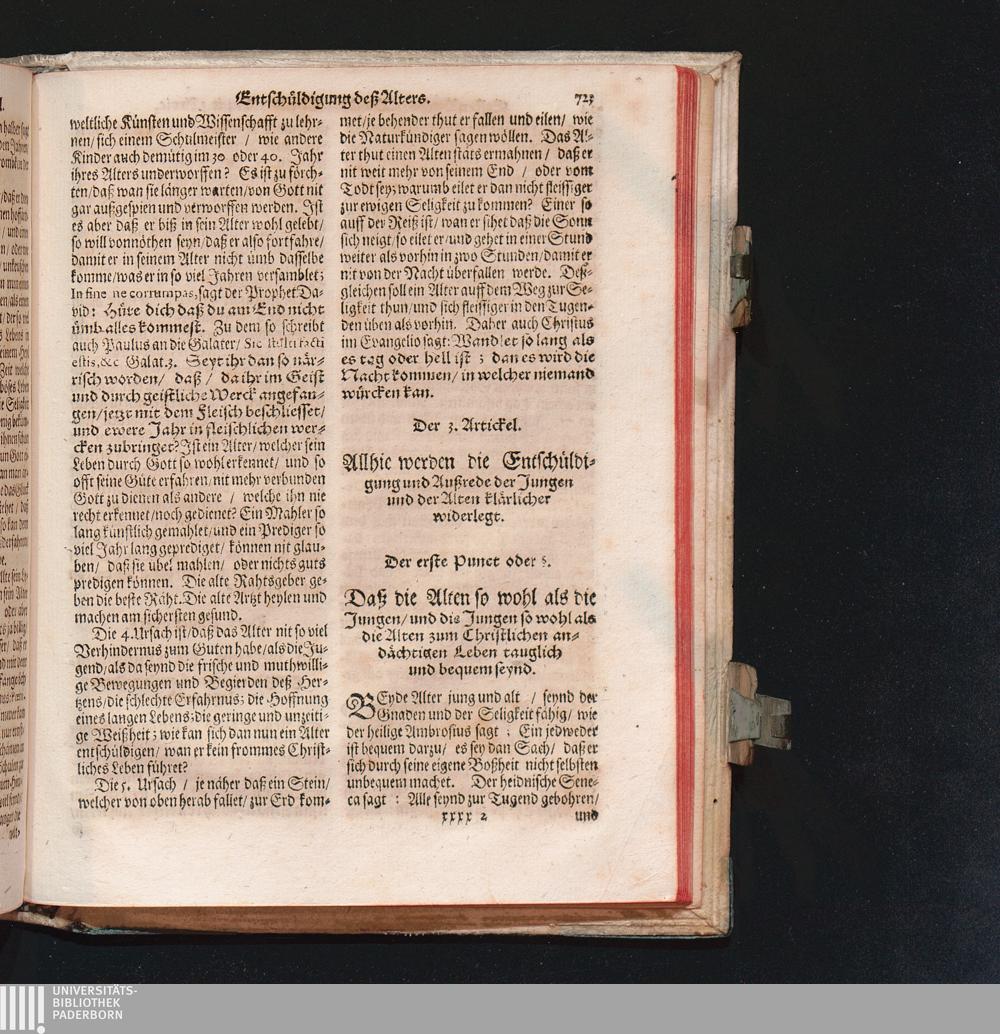 Entschůldigung deß Alters. 723
weltliche Kůnsten und Wissenschafft zu lehr-
nen/ sich einem Schulmeister / wie andere
Kinder auch demůtig im 30 oder 40. Jahr
ihres Alters underworffen? Es ist zu förch-
ten/ daß wan sie långer warten/ von Gott nit
gar außgespien und verworffen werden. Ist
es aber daß er biß in sein Alter wohl gelebt/
so will vonnöthen seyn/ daß er also fortfahre/
damit er in seinem Alter nicht ůmb dasselbe
komme/ was er in so viel Jahren versamblet;
In fine ne corrumpas, sagt der Prophet Da-
vid: Hůte dich daß du am End nicht
ůmb alles kommest. Zu dem so schreibt
auch Paulus an die Galater/ Sic stulti
estis, &c Galat. 3. Seyt ihr dan so når-
risch worden/ daß / da ihr im Geist
und durch geistliche Werck angefan-
gen/ jetzt mit dem Fleisch beschliesset/
und ewere Jahr in fleischlichen wer-
cken zubringet? Ist ein Alter/ welcher sein
Leben durch Gott so wohl erkennet/ und so
offt seine Gůte erfahren/ nit mehr verbunden
Gott zu dienen als andere / welche ihn nie
recht erkennet/ noch gedienet? Ein Mahler so
lang kůnstlich gemahlet/ und ein Prediger so
viel Jahr lang geprediget/ können nit glau-
ben/ daß sie ůbel mahlen/ oder nichts guts
predigen können. Die alte Rahtsgeber ge-
ben die beste Råht. Die alte Artzt heylen und
machen am sichersten gesund.
Die 4. Ursach ist/ daß das Alter nit so viel
Verhindernus zum Guten habe/ als die Ju-
gend/ als da seynd die frische und muthwilli-
ge Bewegungen und Begierden deß Her-
tzens/ die schlechte Erfahrnus; die Hoffnung
eines langen Lebens; die geringe und unzeiti-
ge Weißheit; wie kan sich dan nun ein Alter
entschůldigen/ wan er kein frommes Christ-
liches Leben fůhret?
Die 5. Ursach / je nåher daß ein Stein/
welcher von oben herab fallet/ zur Erd kom-
met/ je behender thut er fallen und eilen/ wie
die Naturkůndiger sagen wöllen. Das Al-
ter thut einen Alten ståts ermahnen/ daß er
nit weit mehr von seinem End / oder vom
Todt sey; warumb eilet er dan nicht fleissiger
zur ewigen Seligkeit zu kommen? Einer so
auff der Reiß ist/ wan er sihet daß die Sonn
sich neigt/ so eilet er/ und gehet in einer Stund
weiter als vorhin in zwo Stunden/ damit er
nit von der Nacht ůberfallen werde. Deß-
gleichen soll ein Alter auff dem Weg zur Se-
ligkeit thun/ und sich fleissiger in den Tugen-
den ůben als vorhin. Daher auch Christus
im Evangelio sagt: Wandlet so lang als
es tag oder hell ist ; dan es wird die
Nacht kommen/ in welcher niemand
wůrcken kan.
Der 3. Artickel.
Allhie werden die Entschůldi-
gung und Außrede der Jungen
und der Alten klårlicher
widerlegt.
Der erste Punct oder §.
Daß die Alten so wohl als die
Jungen/ und die Jungen so wohl als
die Alten zum Christlichen an-
dåchtigen Leben tauglich
und bequem seynd.
BEyde Alter jung und alt / seynd der
Gnaden und der Seligkeit fåhig/ wie
der heilige Ambrosius sagt ; Ein jedweder
ist bequem darzu/ es sey dan Sach/ daß er
sich durch seine eigene Boßheit nicht selbsten
unbequem machet. Der heidnische Sene-
ca sagt : Alle seynd zur Tugend gebohren/
xxxx 2 und
UNIVERSITÄTS-
BIBLIOTHEK
PADERBORN